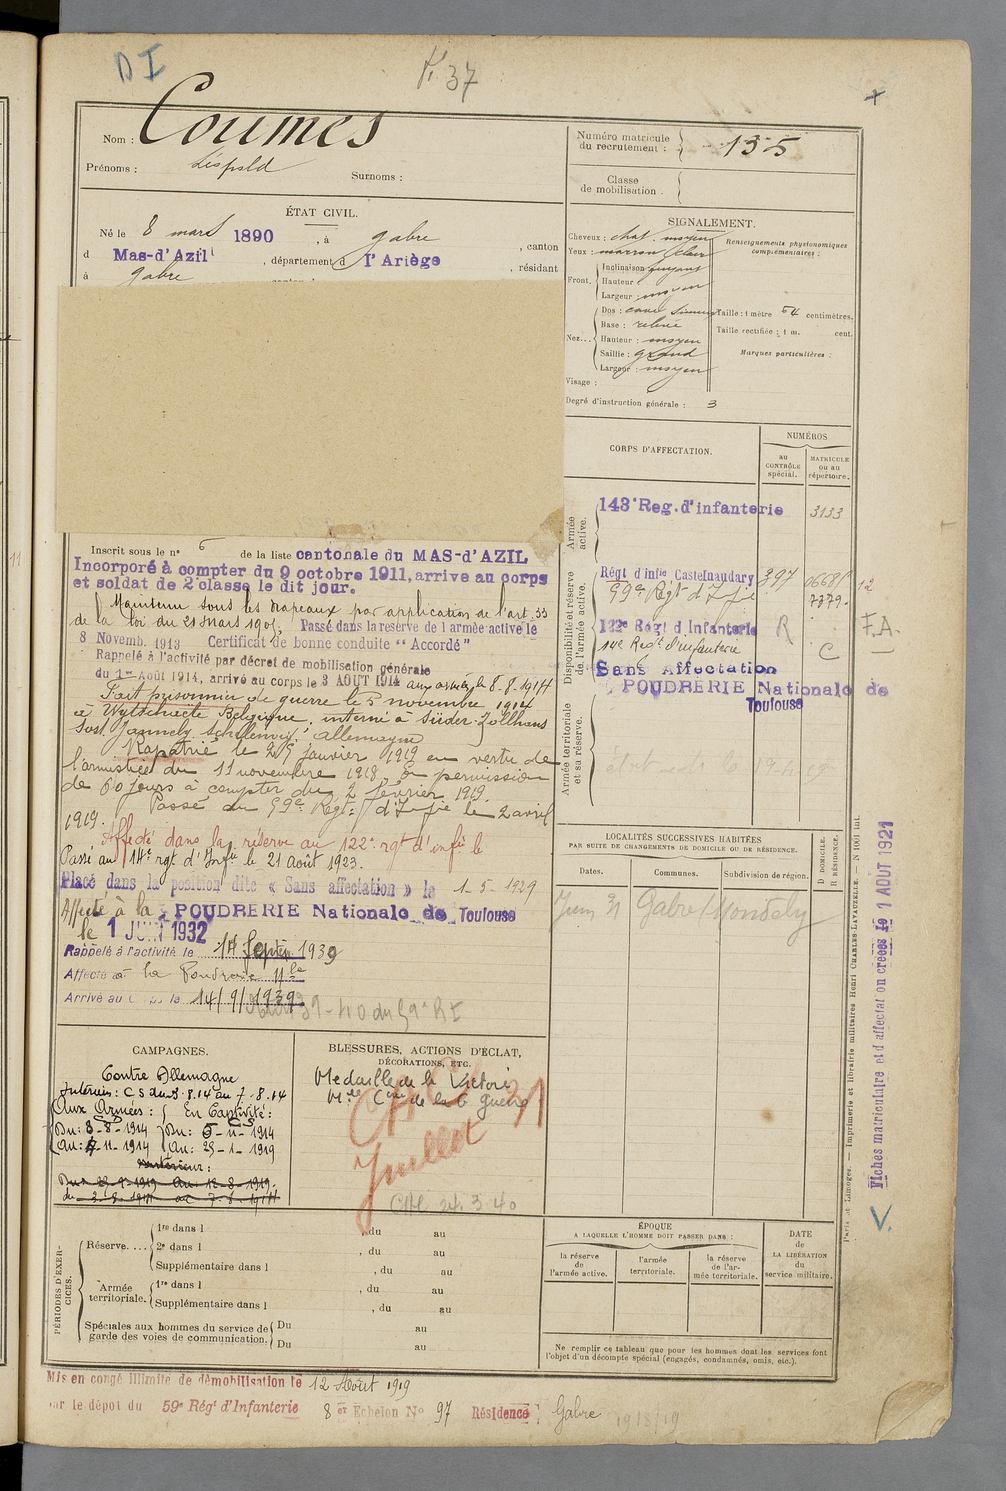 D I
37
Nom : Coumes
Prénoms : Léopold Surnoms :
Numéro matricule du recrutement : 135
Classe de mobilisation :
ÉTAT CIVIL.
Né le 8 mars 1890, à Gabre, canton
d Mas-d'Azil, département d l'Ariège, résidant
à Gabre
SIGNALEMENT.
Cheveux : chat. moyen
Yeux : marron clair
Front.
Inclinaison : fuyant
Hauteur :
Largeur : moyen
Nez...
Dos : cave
Base : relevé
Hauteur : moyen
Saillie : grand
Largeur : moyen
Visage :
Renseignements physionomiques complémentaires :
Taille : 1 mètre 64 centimètres.
Taille rectifiée : 1 m. cent.
Marques particulières :
Degré d'instruction générale : 3
CORPS D'AFFECTATION.
NUMÉROS
au CONTRÔLE spécial.
MATRICULE ou au répertoire.
Armée active.
143e Reg. d'infanterie 3133
Disponibilité et réserve de l'armée active.
Régt d'infie Castelnaudary 397
59e Régt d'Infie 7379
122e Régt d'Infanterie R
14e Régt d'infanterie C
F.A.
12
Sans Affectation
POUDRERIE Nationale de Toulouse
Armée territoriale et sa réserve.
Inscrit sous le n° 6 de la liste cantonale du MAS-d'AZIL
Incorporé à compter du 9 octobre 1911, arrive au corps
et soldat de 2e classe le dit jour.
Maintenu sous les drapeaux par application de l'art. 33
de la loi du 21 mars 1905. Passé dans la réserve de l'armée active le
8 Novemb. 1913 Certificat de bonne conduite "Accordé"
Rappelé à l'activité par décret de mobilisation générale
du 1er Août 1914, arrivé au corps le 3 AOUT 1914 aux armées le 8-8-1914
Fait prisonnier de guerre le 5 novembre 1914
à Wytschaete Belgique, interné à Süder-Zollhaus
allemagne
Rapatrié le 25 janvier 1919 en vertu de
l'armistice du 11 novembre 1918. En permission
de 60 jours à compter du 2 février 1919.
Passé au 59e Régt d'Infie le 2 avril
1919.
Affecté dans la réserve au 122e rgt d'infie le
Passé au 14e rgt d'Infie le 21 Août 1923.
Placé dans la position dite « Sans affectation » le 1-5-1929
Affecté à la POUDRERIE Nationale de Toulouse
le 1 JUIN 1932
Rappelé à l'activité le 14 Septem 1939
Affecté à la Poudrerie Nle
Arrivé au le 14/9/1939
LOCALITÉS SUCCESSIVES HABITÉES
PAR SUITE DE CHANGEMENTS DE DOMICILE OU DE RÉSIDENCE.
Dates.
Communes.
Subdivision de région.
D DOMICILE.
R RÉSIDENCE.
Gabre
CAMPAGNES.
Contre Allemagne
Intérieur : CS du 3.8.14 au 7.8.14
Aux Armées : En Captivité :
Du : 8-8-1914 Du : 5-11-1914
Au : 4-11-1914 Au : 25-1-1919
Intérieur :
BLESSURES, ACTIONS D'ÉCLAT,
DÉCORATIONS, ETC.
Médaille de la Victoire
Mlle Cve de la Gde Guerre
Juillet 31
24.3.40
PÉRIODES D'EXERCICES.
Réserve....
1re dans l , du au
2e dans l , du au
Supplémentaire dans l , du au
Armée territoriale.
1re dans l , du au
Supplémentaire dans l , du au
Spéciales aux hommes du service de garde des voies de communication.
Du au
Du au
ÉPOQUE
A LAQUELLE L'HOMME DOIT PASSER DANS :
la réserve de l'armée active.
l'armée territoriale.
la réserve de l'armée territoriale.
DATE de LA LIBÉRATION du service militaire.
Ne remplir ce tableau que pour les hommes dont les services font
l'objet d'un décompte spécial (engagés, condamnés, omis, etc.).
Mis en congé illimité de démobilisation le 12 Août 1919
par le dépôt du 59e Rég' d'Infanterie 8er Echelon No 97 Résidence : Gabre
Paris et Limoges. — Imprimerie et librairie militaires Henri CHARLES-LAVAUZELLE. — N 1001 int.
Fiches matriculaire et d'affectation créées le 1 AOUT 1921
V.